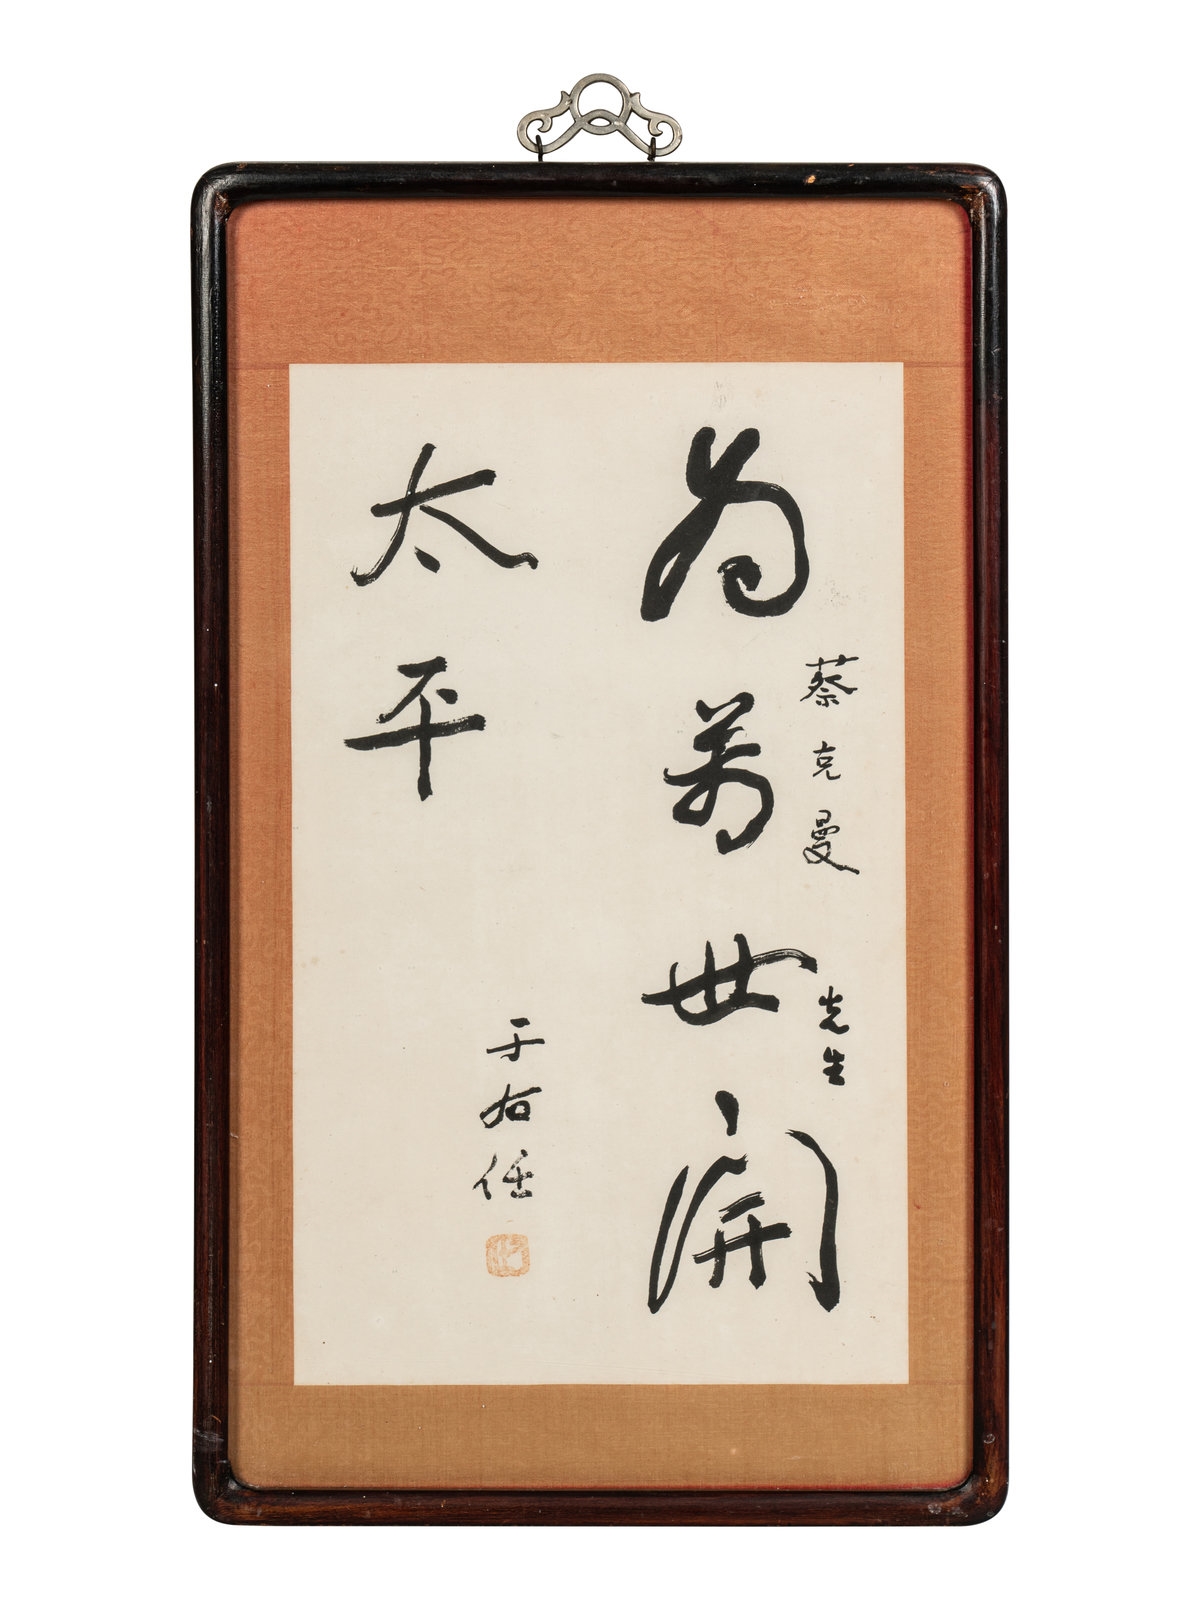 為萬世開
太平
蔡克曼先生
于右任